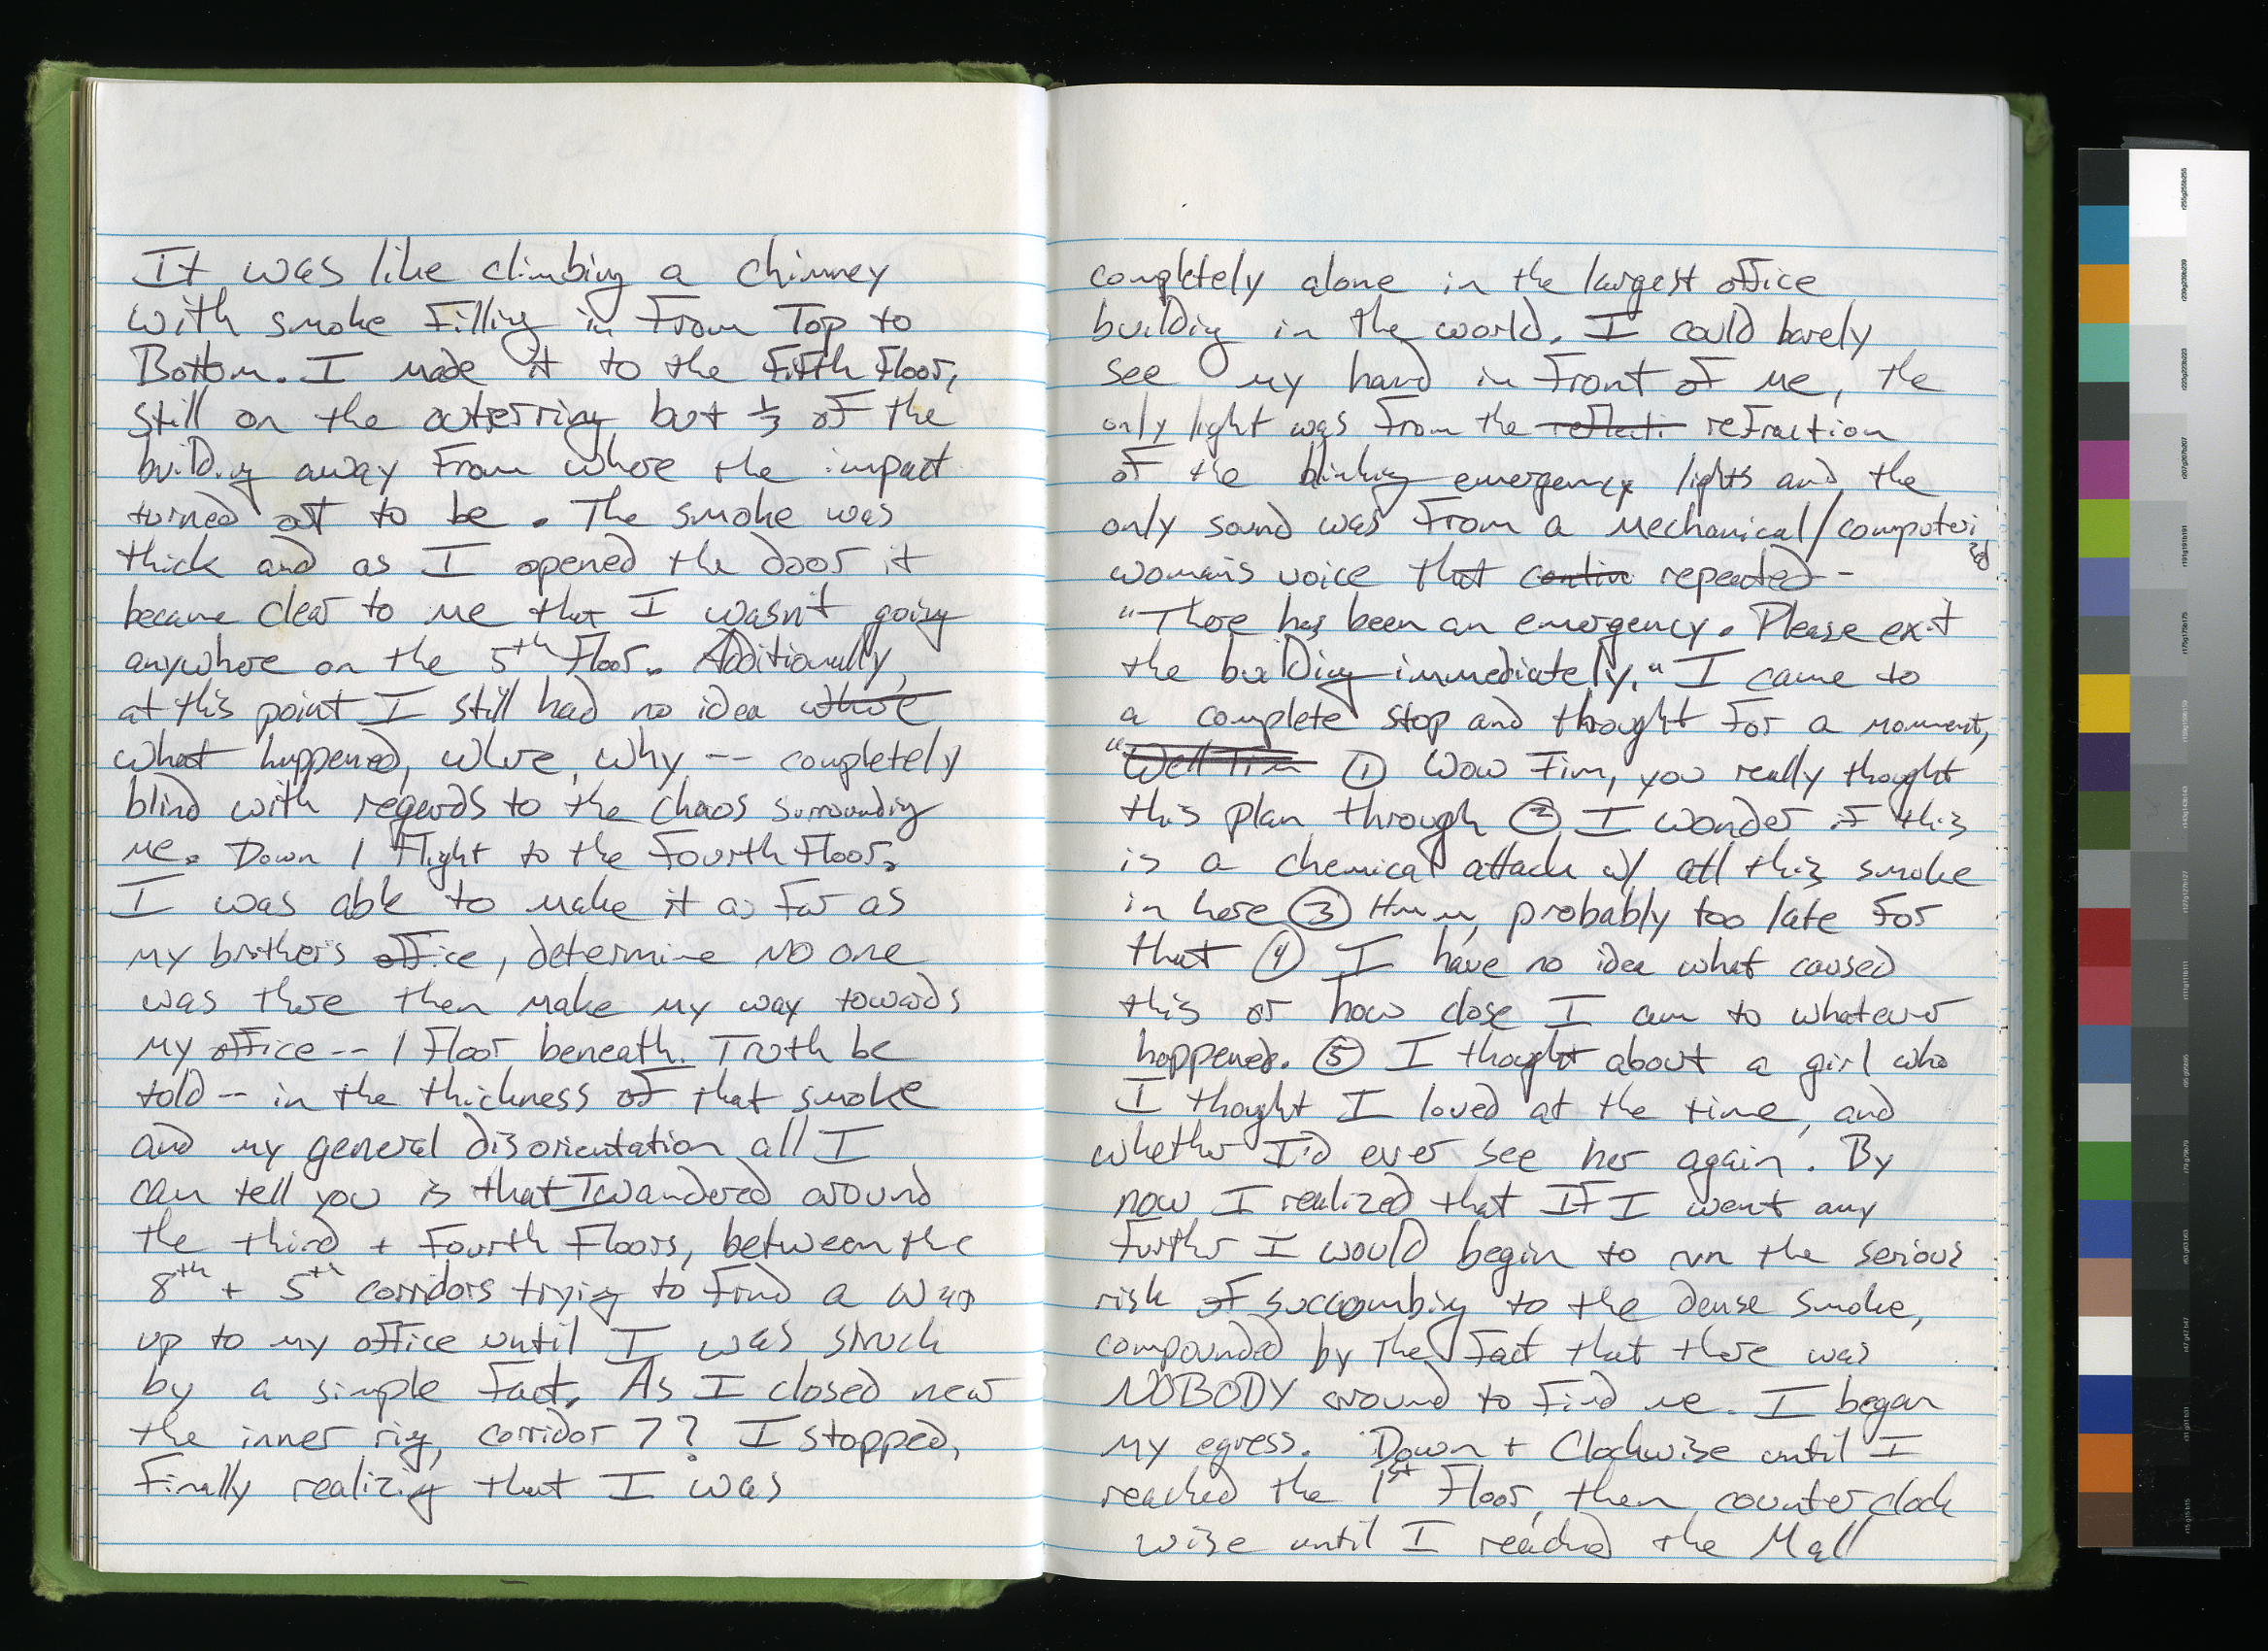 It was like climbing a chimney
with smoke filling in from Top to
Bottom. I made it to the fifth floor,
still on the outerring but 1/3 of the
building away from where the impact
turned out to be. The smoke was
thick and as I opened the door it
became clear to me that I wasn't going
anywhere on the 5th floor. Additionally,
at this point I still had no idea where
what happened, where, why -- completely
blind with regards to the chaos surrounding
me. Down 1 flight to the fourth floor.
I was able to make it as far as
my brother's office, determine no one
was there then make my way towards
my office -- 1 floor beneath. Truth be
told -- in the thickness of that smoke
and my general disorientation all I
can tell you is that I wandered around
the third + fourth floors, between the
8th + 5th corridors trying to find a way
up to my office until I was struck
by a simple fact. As I closed near
the inner ring, corridor 7? I stopped,
finally realizing that I was
completely alone in the largest office
building in the world. I could barely
see my hand in front of me, the
only light was from the reflecti refraction
of the blinking emergency lights and the
only sound was from a mechanical/computerized
woman's voice that contin repeated -
"There has been an emergency. Please exit
the building immediately." I came to
a complete stop and thought for a moment,
"Well Tim ① Wow Tim, you really thought
this plan through ② I wonder if this
is a chemical attack w/ all this smoke
in here ③ Hmm, probably too late for
that ④ I have no idea what caused
this or how close I am to whatever
happened. ⑤ I thought about a girl who
I thought I loved at the time, and
whether I'd ever see her again. By
now I realized that If I went any
further I would begin to run the serious
risk of succombing to the dense smoke,
compounded by the fact that there was
NOBODY around to find me. I began
my egress. Down + Clockwise until I
reached the 1st Floor, then counter clock
wise until I reached the Mall